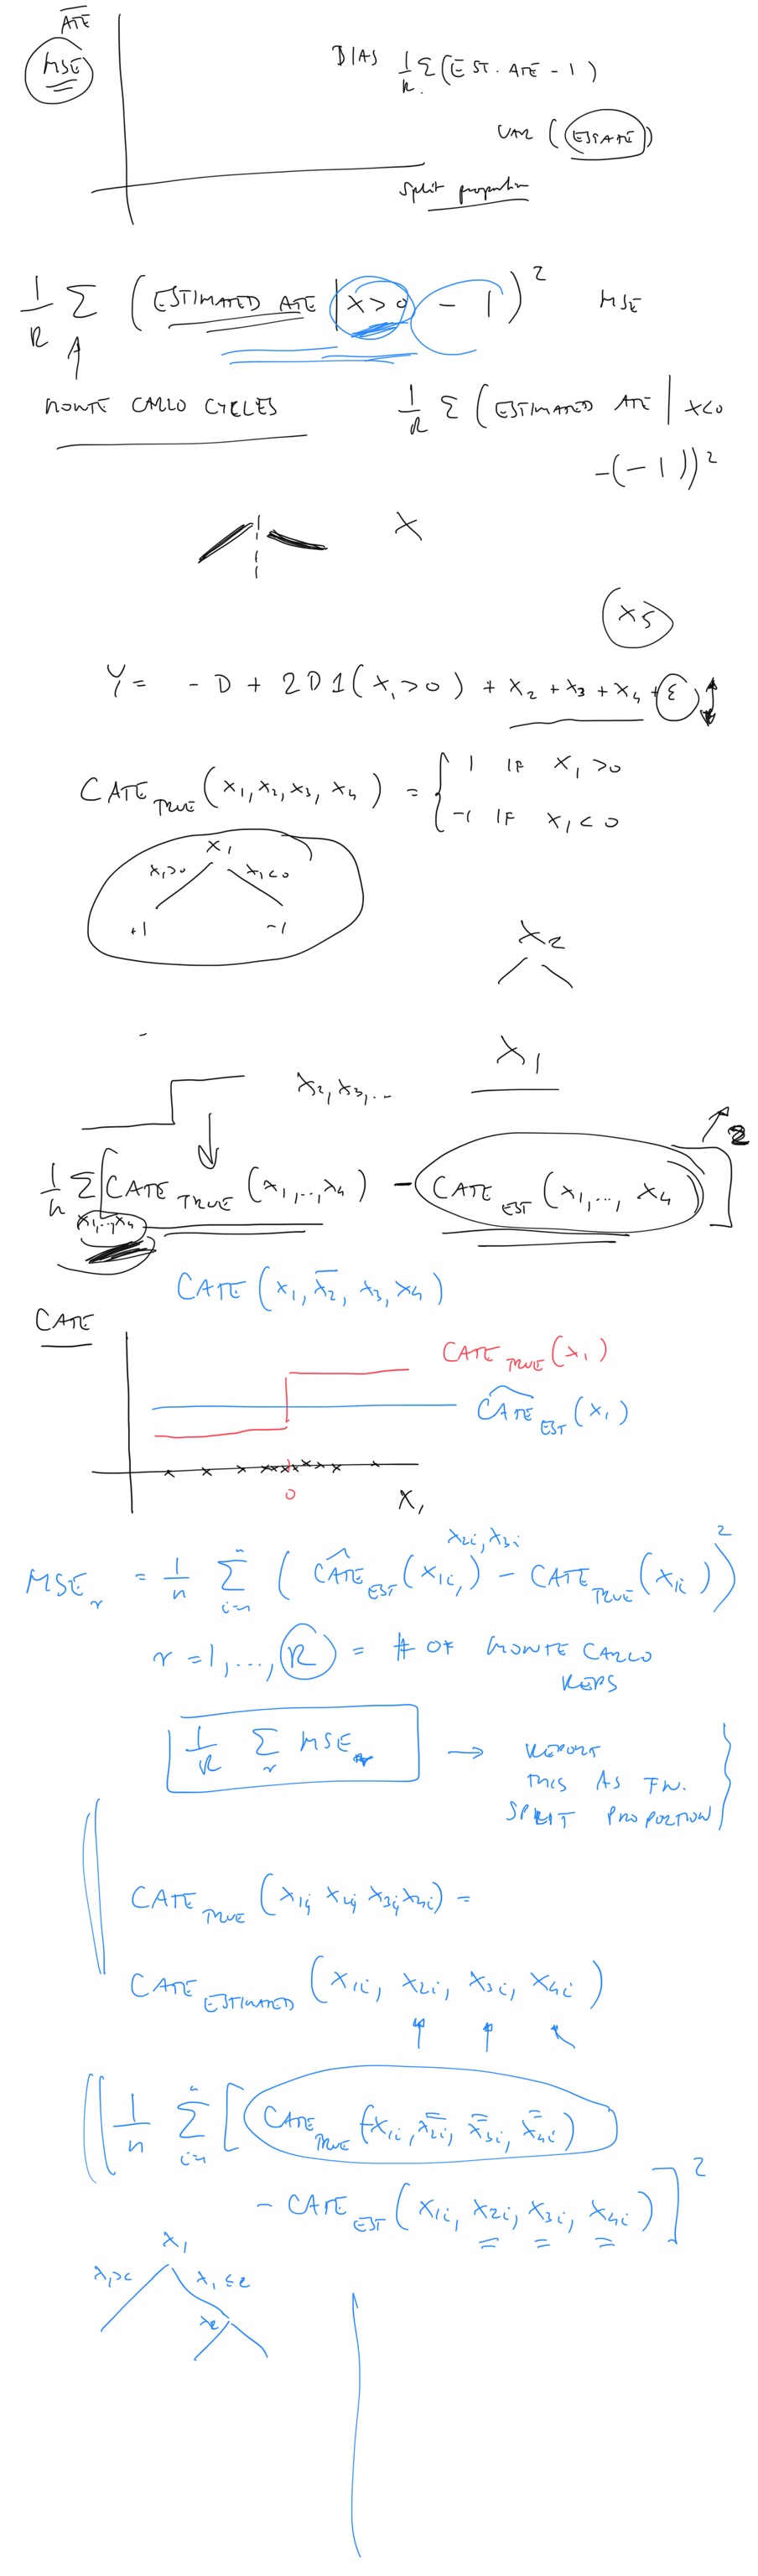 ATE
MSE
BIAS 1/R Σ(EST. ATE - 1)
VAR (EST ATE)
split proportion
1/R Σ (ESTIMATED ATE | X>0 - 1)² MSE
MONTE CARLO CYCLES
1/R Σ (ESTIMATED ATE | X<0
-(-1))²
X
X5
Y = - D + 2D1(X₁>0) + X₂ + X₃ + X₄ + ε
CATE TRUE (X₁, X₂, X₃, X₄) = { 1 IF X₁ >0
-1 IF X₁ < 0
X₁
X₁>0 X₁<0
+1 -1
X₂
X₁
X₂, X₃, ...
1/n Σ [CATE TRUE (X₁,..., X₄) - CATE EST (X₁,..., X₄)]²
X₁,..,X₄
CATE (X₁, X̄₂, X₃, X₄)
CATE
CATE TRUE (X₁)
CATE EST (X₁)
0
X₁
X₂ᵢ, X₃ᵢ
MSE r = 1/n Σ (CATE EST (X₁ᵢ,) - CATE TRUE (X₁ᵢ))²
r = 1, ..., R = # OF MONTE CARLO
REPS
1/R Σ r MSE r → REPORT
THIS AS FN.
SPLIT PROPORTION
CATE TRUE (X₁ᵢ X₂ᵢ X₃ᵢ X₄ᵢ) =
CATE ESTIMATED (X₁ᵢ, X₂ᵢ, X₃ᵢ, X₄ᵢ)
1/n Σ [CATE TRUE (X₁ᵢ, X₂ᵢ, X₃ᵢ, X₄ᵢ)
- CATE EST (X₁ᵢ, X₂ᵢ, X₃ᵢ, X₄ᵢ)]²
X₁
X₁>c X₁ ≤ c
X₂